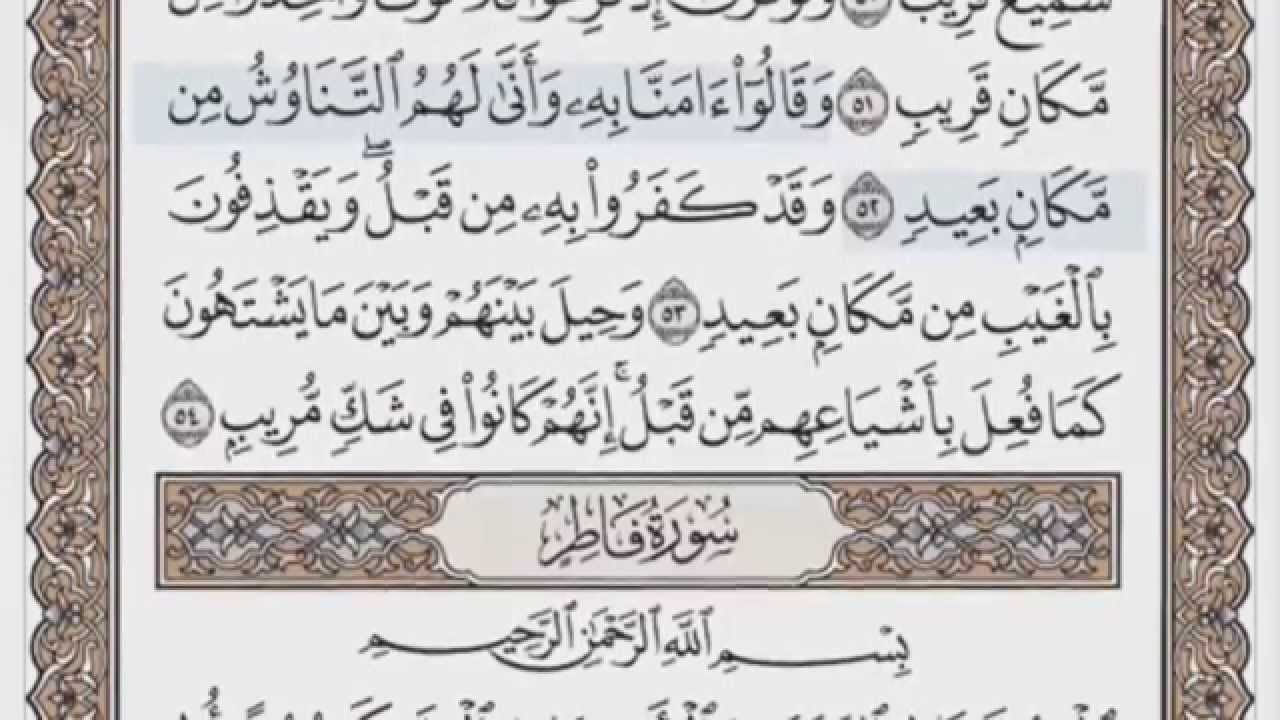 سَمِيعٌ قَرِيبٌ
مَّكَانٍ قَرِيبٍ ٥١ وَقَالُوٓا۟ ءَامَنَّا بِهِۦ وَأَنَّىٰ لَهُمُ ٱلتَّنَاوُشُ مِن
مَّكَانٍۭ بَعِيدٍ ٥٢ وَقَدْ كَفَرُوا۟ بِهِۦ مِن قَبْلُ ۖ وَيَقْذِفُونَ
بِٱلْغَيْبِ مِن مَّكَانٍۭ بَعِيدٍ ٥٣ وَحِيلَ بَيْنَهُمْ وَبَيْنَ مَا يَشْتَهُونَ
كَمَا فُعِلَ بِأَشْيَاعِهِم مِّن قَبْلُ ۚ إِنَّهُمْ كَانُوا۟ فِى شَكٍّ مُّرِيبٍۭ ٥٤
سُورَةُ فَاطِرٍ
بِسْمِ ٱللَّهِ ٱلرَّحْمَٰنِ ٱلرَّحِيمِ